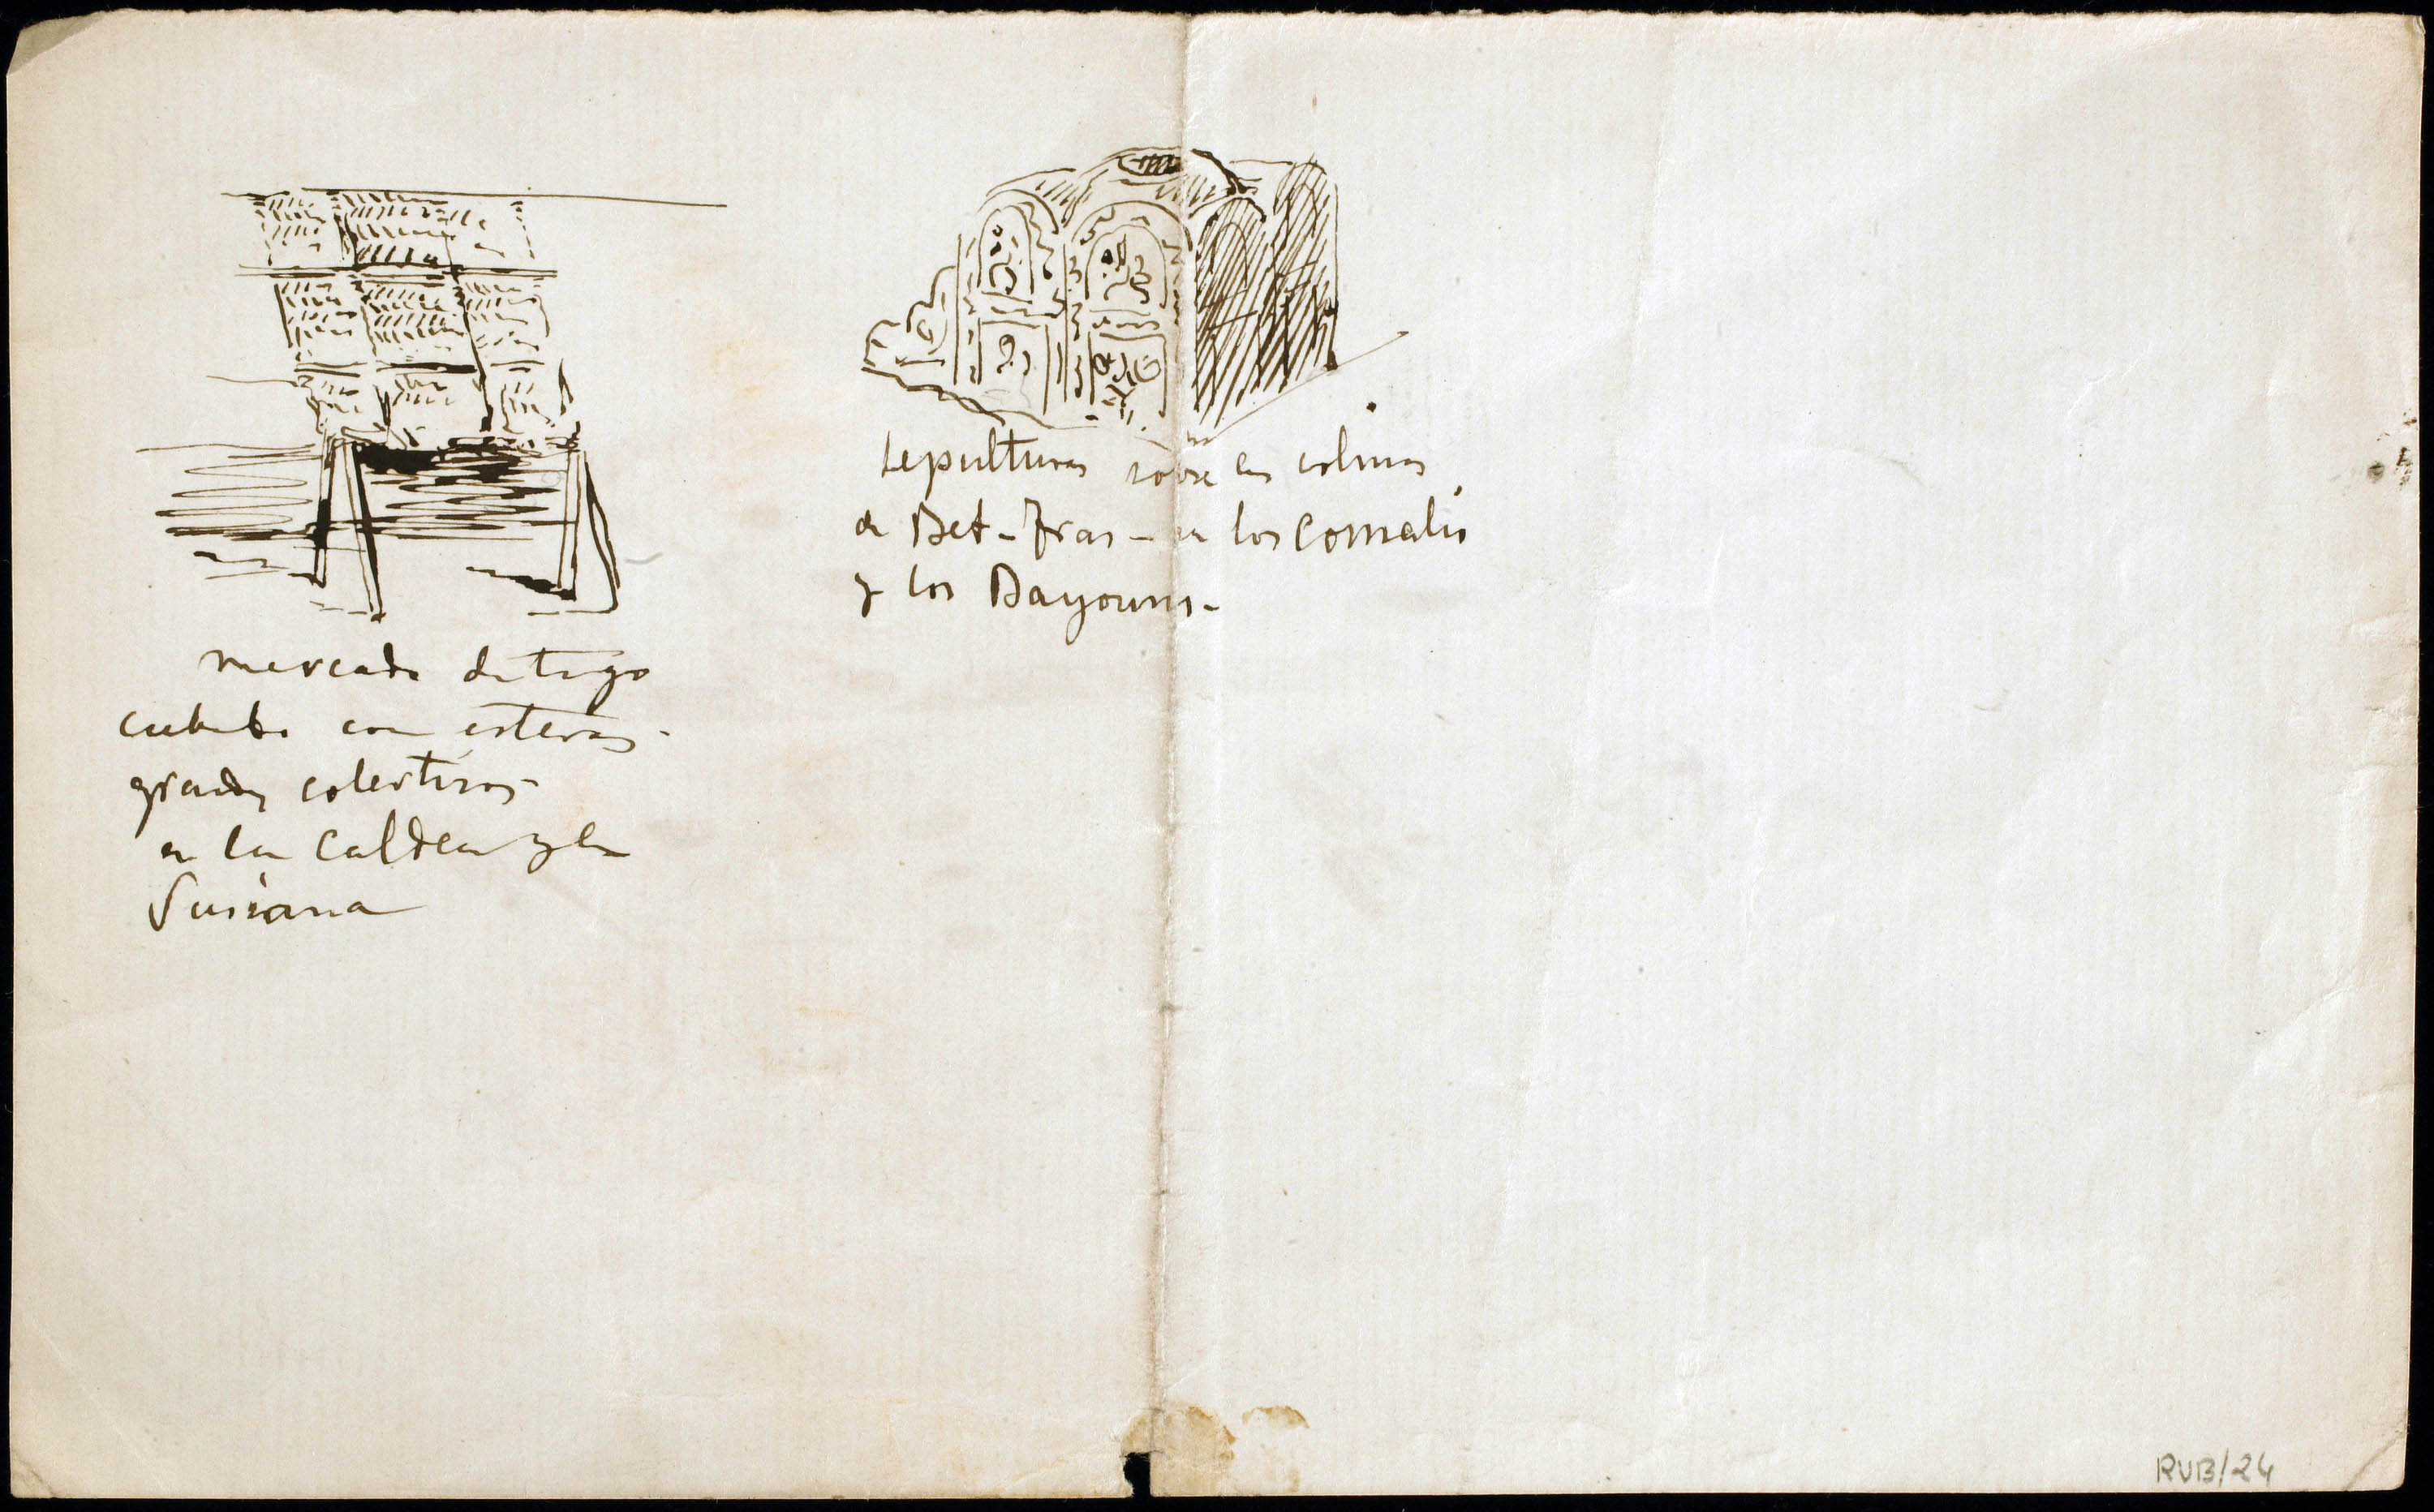 mercado de trigo
cubierto con esteras -
grandes colectivos
en la Caldea y la
Susiana
sepulturas sobre las colinas
de Bet-Fras - en los Comalis
y los Bayouns -
RVB/24